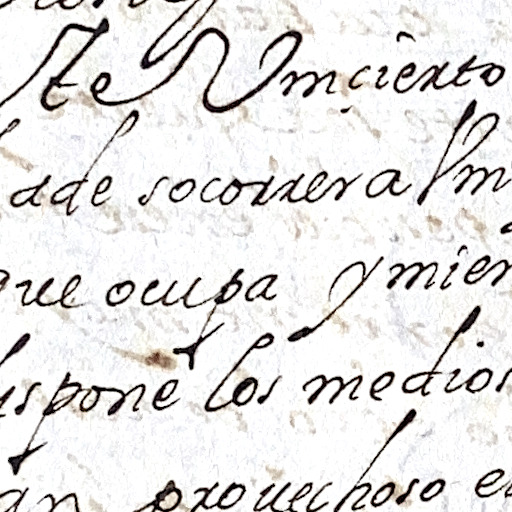 te Vm çierto
ade socorrer a Vm
que ocupa y mien
dispone los medios
an provechoso e